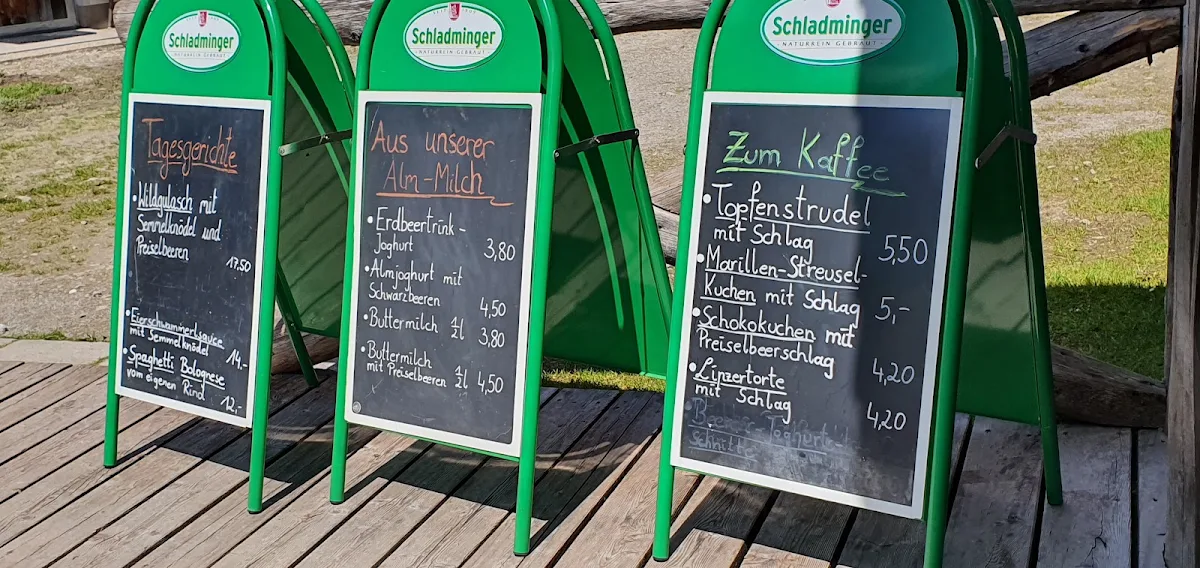 Schladminger
NATURREIN GEBRAUT
Tagesgerichte
• Wildgulasch mit
Semmelknödel und
Preiselbeeren
17,50
• Eierschwammerlsauce
mit Semmelknödel 14,-
• Spaghetti Bolognese
vom eigenen Rind 12,-
Schladminger
NATURREIN GEBRAUT
Aus unserer
Alm-Milch
• Erdbeertrink-
Joghurt 3,80
• Almjoghurt mit
Schwarzbeeren 4,50
• Buttermilch ½ l 3,80
• Buttermilch
mit Preiselbeeren ½ l 4,50
Schladminger
NATURREIN GEBRAUT
Zum Kaffee
• Topfenstrudel
mit Schlag 5,50
• Marillen-Streusel-
Kuchen mit Schlag 5,-
• Schokokuchen mit
Preiselbeerschlag 4,20
• Linzertorte
mit Schlag 4,20